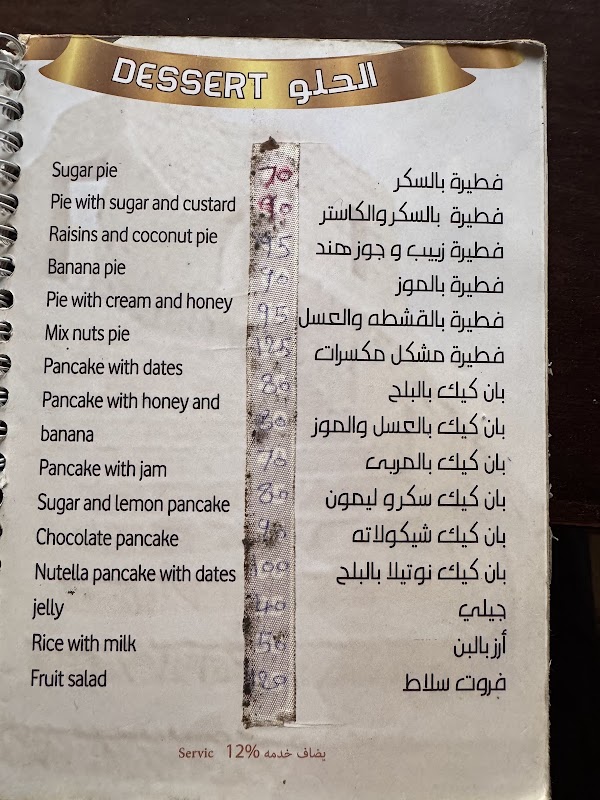 DESSERT الحلو
Sugar pie 70 فطيرة بالسكر
Pie with sugar and custard 90 فطيرة بالسكر والكاستر
Raisins and coconut pie 95 فطيرة زبيب و جوز هند
Banana pie 90 فطيرة بالموز
Pie with cream and honey 95 فطيرة بالقشطه والعسل
Mix nuts pie 125 فطيرة مشكل مكسرات
Pancake with dates 80 بان كيك بالبلح
Pancake with honey and 80 بان كيك بالعسل والموز
banana
Pancake with jam 70 بان كيك بالمربى
Sugar and lemon pancake 80 بان كيك سكر و ليمون
Chocolate pancake بان كيك شيكولاته
Nutella pancake with dates 100 بان كيك نوتيلا بالبلح
jelly 40 جيلي
Rice with milk 50 أرز بالبن
Fruit salad 120 فروت سلاط
Servic 12% يضاف خدمه